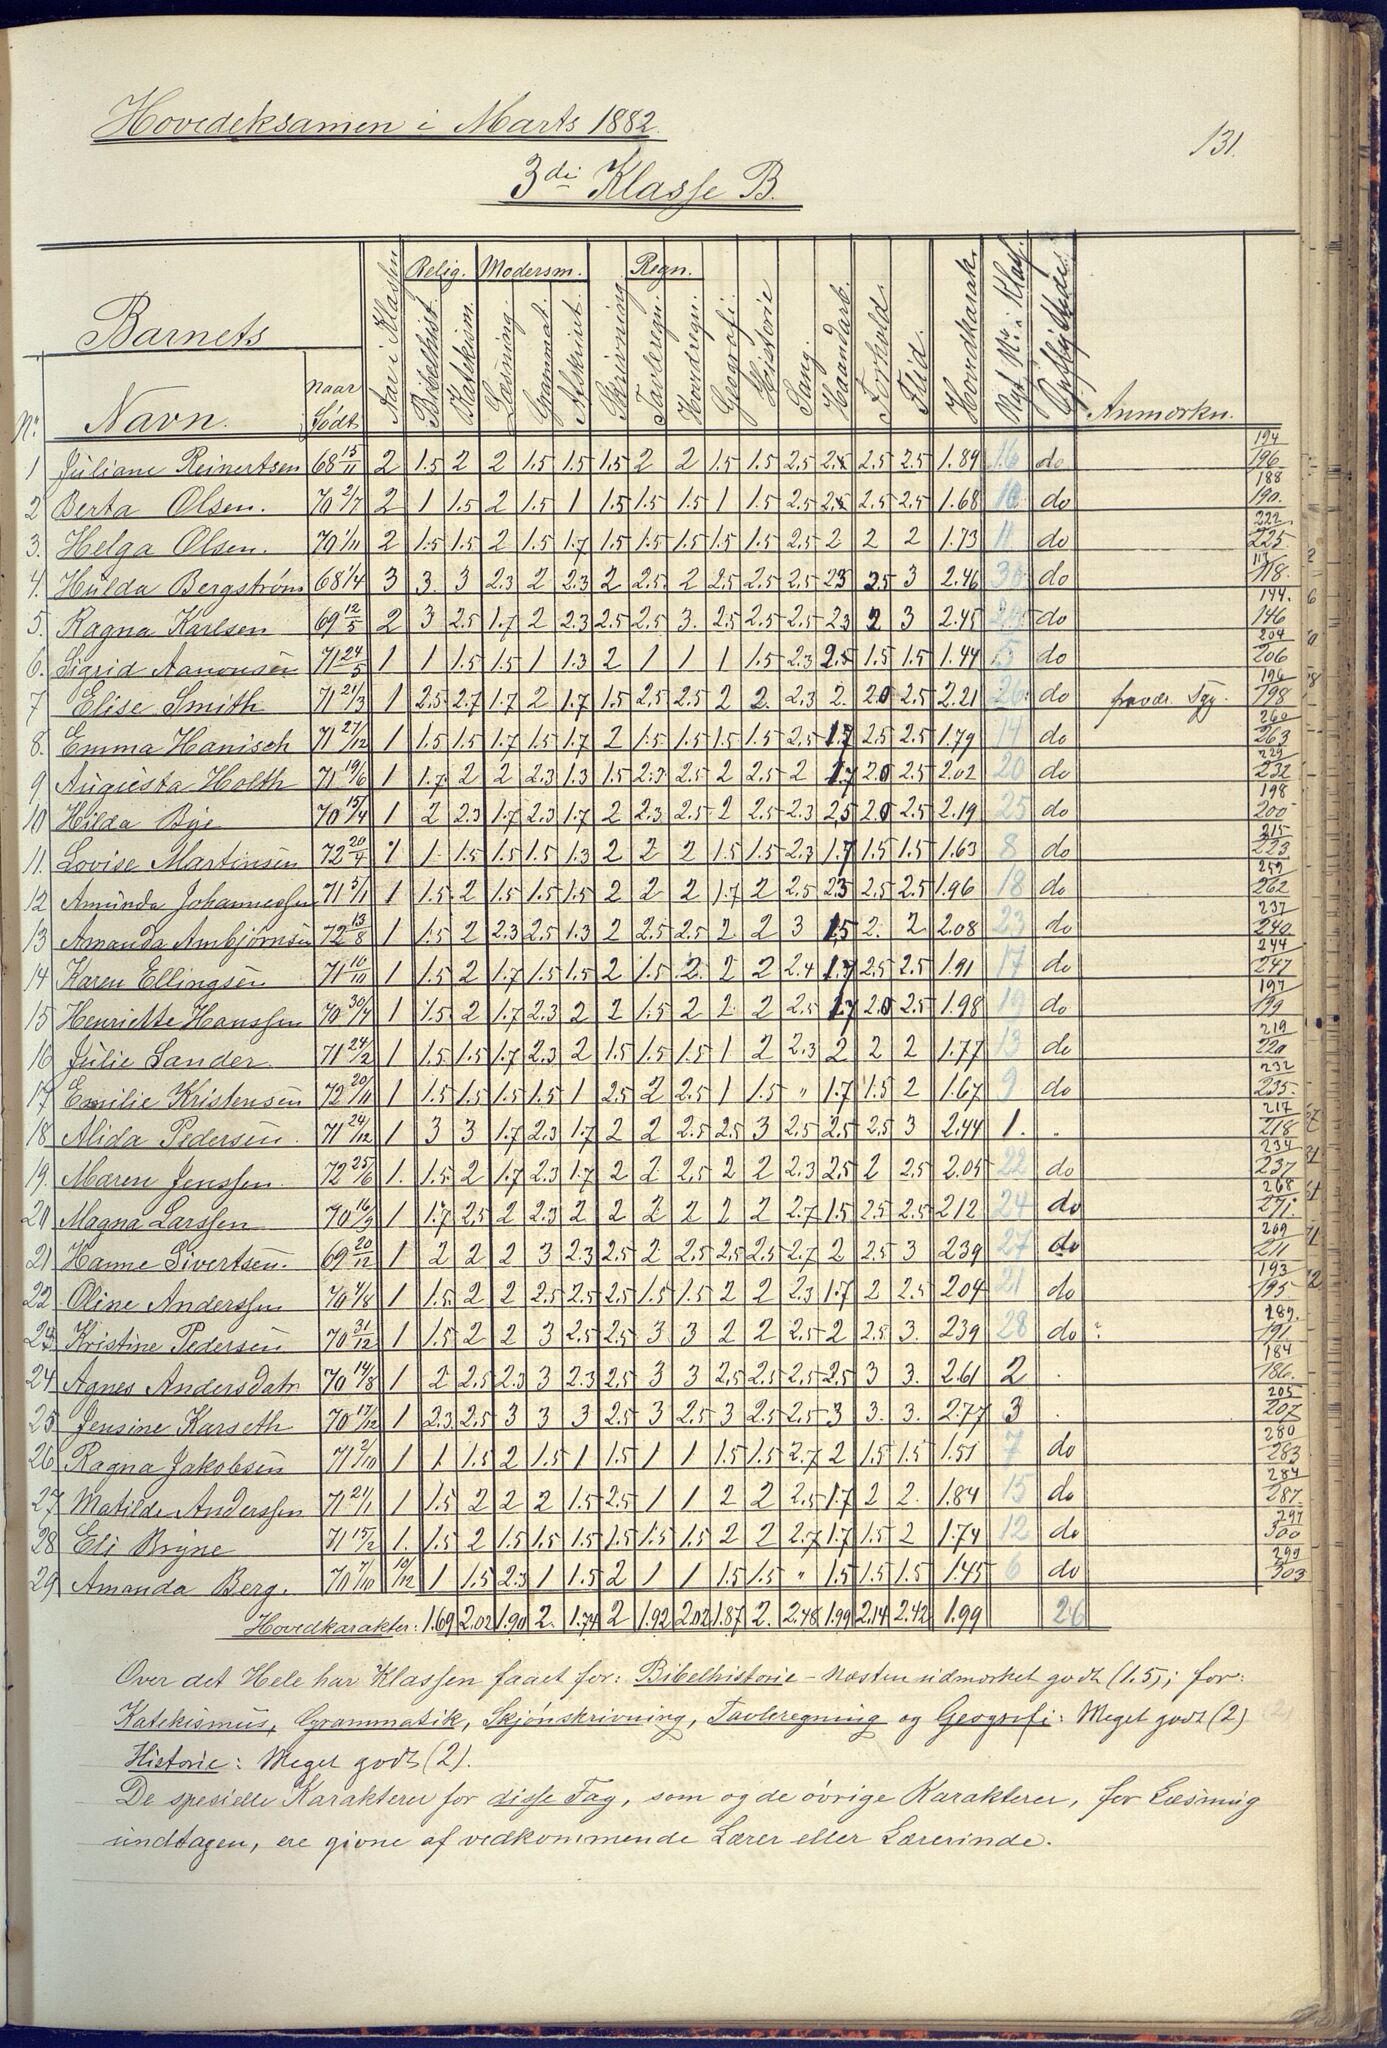 Hovedeksamen i Marts 1882.
131.
3di Klasse B.
Barnets
Nr. Navn. Naar Født Aar i Klassen Relig. Bibelhist. Katekism. Modersm. Læsning. Grammat. Afskrivt. Skrivning Regn. Tavleregn. Hovdregn. Geografi. Historie Sang. Haandarb. Forhold. Flid. Hovdkarak. Nyt Nr. i Klas. Anmærkn.
1 Juliane Reinertsen 68 15/11 2 1.5 2 2 1.5 1.5 1.5 2 2 1.5 1.5 2.5 2.5 2.5 2.5 1.89 16 do 194/196
2 Berta Olsen. 70 2/7 2 1 1.5 2 1.5 1 1.5 1.5 1.5 1 1.5 2.5 2.5 2.5 2.5 1.68 10 do 188/190.
3. Helga Olsen. 70 1/11 2 1.5 1.5 2 1.5 1.7 1.5 1.5 1.5 1.5 1.5 2.5 2 2 2 1.73 11 do 222/225.
4. Hulda Bergstrøm 68 1/4 3 3. 3 2.3 2 2.3 2 2.5. 2 2.5 2.5 2.5 23 2.5 3 2.46 30 do 117/118.
5. Ragna Karlsen 69 12/5 2 3 2.5 1.7 2 2.3 2.5 2.5 3. 2.5 2.5 2.5 23 2 3 2.45 29 do 144./146
6. Sigrid Aanonsen 71 24/5 1 1 1.5 1.5 1 1.3 2 1 1 1 1.5 2.3 2.5 1.5 1.5 1.44 5 do 204/206
7 Elise Smith 71 21/3 1 2.5 2.7 1.7 2 1.7 1.5 2.5 2.5 2 2. 2.3 2. 20 2.5 2.21 26. do fravær. Tgg. 196/198
8. Emma Hanisch 71 27/12 1 1.5 1.5 1.7 1.5 1.7 2 1.5 1.5 1.5 1.5 2.5 1.7 2.5 2.5 1.79 14 do 260/263
9 Augusta Holth 71 19/6 1 1.7 2 2 2.3 1.3 1.5 2.3 2.5 2 2.5 2 1.7 20 2.5 2.02 20 do 229/232
10 Hilda Bye 70 15/4 1 2 2.3 1.7 2.3 1.7 2 2.3 2.5 2 2.5 2.3 2.5 20 2.5 2.19 25 do 198/200
11. Lovise Martinsen 72 20/4 1 1 1.5 1.5 1.5 1.3 2 2 2 1.5 1.5 2.3 1.7 1.5 1.5 1.63 8 do 215/223
12 Amunda Johannessen 71 5/11 1 1.5 2 1.5 1.5 1.5 2 2 2 1.7 2 2.5 23 2.5 2.5 1.96 18 do 259/262
13 Amanda Ambjørnsen 72 13/8 1 1.5 2 2.3 2.5 1.3 2 2.5 2.5 2 2 3 1.5 2. 2 2.08 23 do 237/240
14 Karen Ellingsen 71 10/10 1 1.5 2 1.7 1.5 1.5 2 1.5 2. 2 2 2.4 1.7 2.5 2.5 1.91 17 do 244/247
15 Henriette Hanssen 70 30/4 1 1.5 2 1.7 2.3 2 2 1.5 2 2 2 2.5 1.7 20 2.5 1.98 19 do 197/199
16 Julie Sander. 71 24/2 1 1.5 1.5 1.7 2.3 2 1.5 1.5 1.5 1. 2 2.3 2 2 2 1.77 13 do 219/220
17 Emilie Kristensen 72 20/11 1 1.5 1.5 1.5 1.5 1 2.5 2 2.5 1 1.5 " 1.7 1.5 2 1.67 9 do 232/235.
18 Alida Pedersen. 71 24/12 1 3 3 1.7 2.3 1.7 2 2 2.5 2.5 3 2.5 2.5 2.5 3 2.44 1. . 217/218
19. Maren Jenssen. 72 25/6 1. 1.5 2 1.7 2.3 1.7 2 2 2.5 2 2 2.3 2.5 2 2.5 2.05 22 do 234/237
20 Magna Larssen 70 16/9 1 1.7 2.5 2 2.3 2 2 2 2 2 2 2.7 1.5 2.5 2.5 212 24 do 268/271.
21 Hanne Sivertsen. 69 20/12 1 2 2 2 3 2.3 2.5 2 2.5 2.5 2.5 2.7 2 2.5 3 239 27 do 209/211
22 Oline Anderssen 70 4/8 1 1.5. 2 2 2.5 2.5 2.5 1.5 1.5 2 2 2.3 1.7 2 2.5 204 21 do 193/195.
23 Kristine Pedersen 70 31/12 1 1.5 2 2 3 2.5 2.5 3 3 2 2 2.5 2 2.5 3. 239 28 do 189./191.
24 Agnes Andersdatr. 70 14/8 1 2 2.5 2.3 3 2.3 2.5 3 3 2.5 2.5 2.5 2.5 3 3. 2.61 2 . 184/186.
25 Jensine Karseth 70 17/12 1 2.3 2.5 3 3 3 2.5 3 2.5 3 2.5 2.5 3 3. 3. 2.77 3 . 205/207
26 Ragna Jakobsen 71 2/10 1 1 1.5 2 1.5 1 1.5 1 1 1.5 1.5 2.7 2 1.5 1.5 1.51 7 do 280/283
27 Matilde Anderssen 71 21/1 1 1.5 2 2 2 1.5 2.5 1 1 2 2 2.5 1.7 2 2. 1.84 15 do 284/287
28 Eli Bryne 71 15/2 1. 1.5 2 1.5 1.5 1.5 1.5 1.5 1.5 2 2 2.7 1.7 1.5 2 1.74 12 do 297/300
29 Amanda Berg. 70 7/10 10/12 1 1.5 2.3 1 1.5 2 1 1 1.5 1.5 " 1.5 1.5 1.5 1.45 6 do 299/303
Hovedkarakter: 1.69 2.02 1.90 2. 1.74 2 1.92 2.02 1.87 2. 2.48 1.99 2.14 2.42 1.99 26
Over det Hele har Klassen faaet for: Bibelhistorie - Næsten udmærket godt (1.5); for:
Katekismus, Grammatik, Skjønskrivning, Tavleregning og Geografi: Meget godt (2)
Historie: Meget godt (2).
De spesielle Karakterer for disse Fag, som og de øvrige Karakterer, for Læsning
undtagen, ere givne af vedkommende Lærer eller Lærerinde.